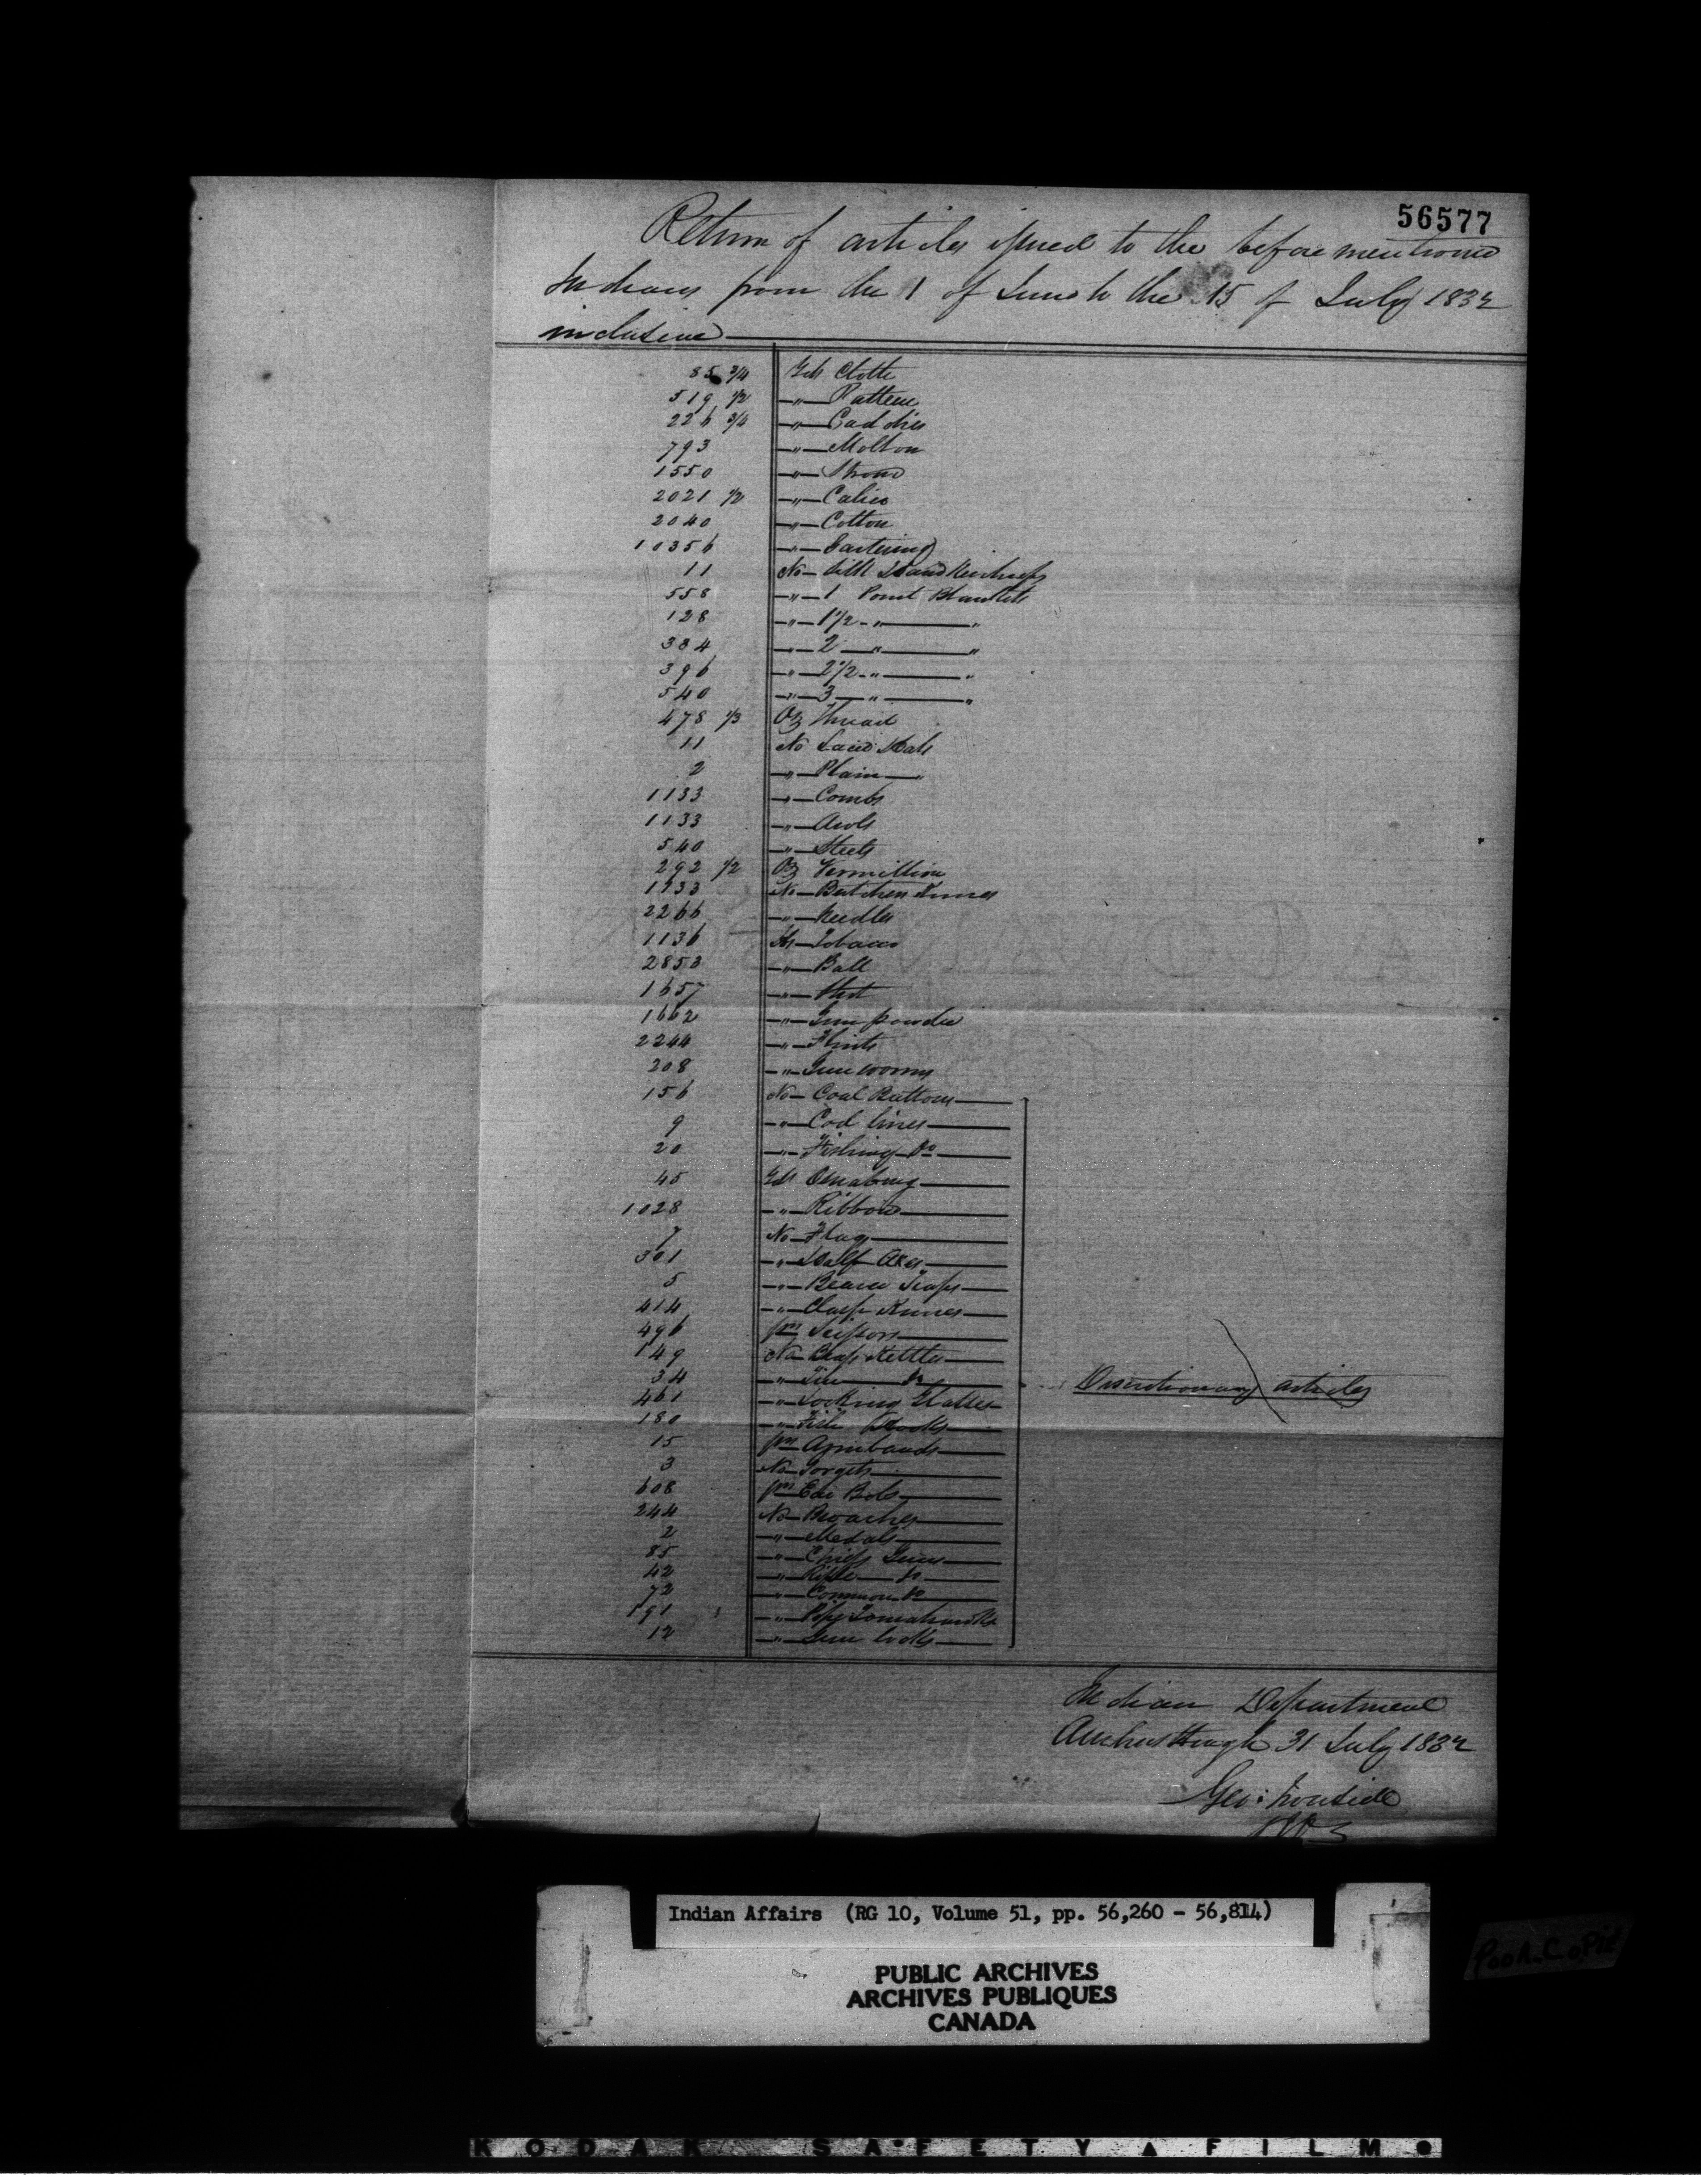 56577
Return of articles issued to the before mentioned
Indians from the 1 of June to the 15 of July 1832
inclusive
85 3/4 Yds Cloth
519 1/2 -"- Ratteen
226 3/4 -"- Caddies
793 -"- Molton
1550 -"- Stroud
2021 1/2 -"- Calico
2040 -"- Cotton
10356 -"- Gartering
11 No - Silk Handkerchiefs
558 -"- 1 Point Blankets
128 -"- 1 1/2 - " - "
384 -"- 2 - " - "
396 -"- 2 1/2 - " - "
540 -"- 3 - " - "
478 1/3 Oz Thread
11 No Laced Hats
2 -"- Plain - "
1133 -"- Combs
1133 -"- Awls
540 -"- Steels
292 1/2 Oz Vermillion
1133 No - Butcher Knives
2266 -"- Needles
1136 lbs - Tobacco
2853 -"- Ball
1657 -"- Shot
1662 -"- Gun powder
2244 -"- Flints
208 -"- Gun worms
156 No - Coat Buttons
9 -"- Cod lines
20 -"- Fishing Do
45 Yds Osnaburg
1028 -"- Ribbon
7 No - Flags
301 -"- Half Axes
5 -"- Beaver Traps
414 -"- Clasp Knives
496 prs Scissors
149 No - Brass Kettles
34 -"- Tin Do
461 -"- Looking Glasses
180 -"- Fish Hooks
15 prs Armbands
3 No - Gorgets
608 prs Ear Bobs
244 No - Broaches
2 -"- Medals
85 -"- Chiefs Guns
42 -"- Rifle Do
72 -"- Common Do
191 -"- Pipe Tomahawks
12 -"- Gun locks
Discretionary articles
Indian Department
Amherstburgh 31 July 1832
Geo: Ironside
Indian Affairs (RG 10, Volume 51, pp. 56,260 - 56,814)
PUBLIC ARCHIVES
ARCHIVES PUBLIQUES
CANADA
KODAK SAFETY FILM